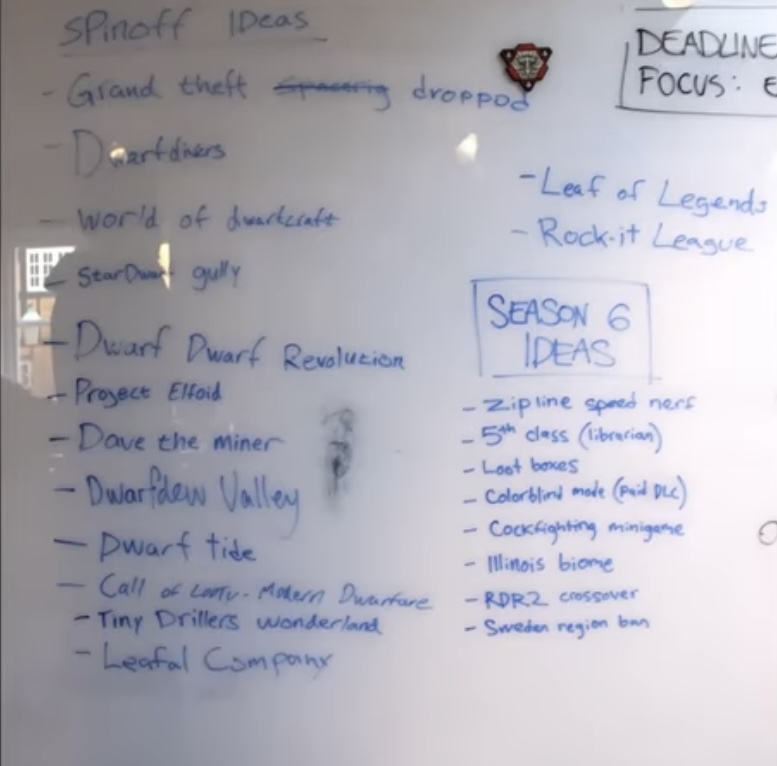 SPINOFF IDEAS
- Grand theft Spacerig droppod
- Dwarfdivers
- World of dwarfcraft
- StarDwarf gully
- Dwarf Dwarf Revolution
- Project Elfoid
- Dave the miner
- Dwarfdew Valley
- Dwarf tide
- Call of Lootv - Modern Dwarfare
- Tiny Drillers wonderland
- Leafal Company
DEADLINE
FOCUS: E
- Leaf of Legends
- Rock-it League
SEASON 6
IDEAS
- Zipline speed nerf
- 5th class (librarian)
- Loot boxes
- Colorblind mode (Paid DLC)
- Cockfighting minigame
- Illinois biome
- RDR2 crossover
- Sweden region ban